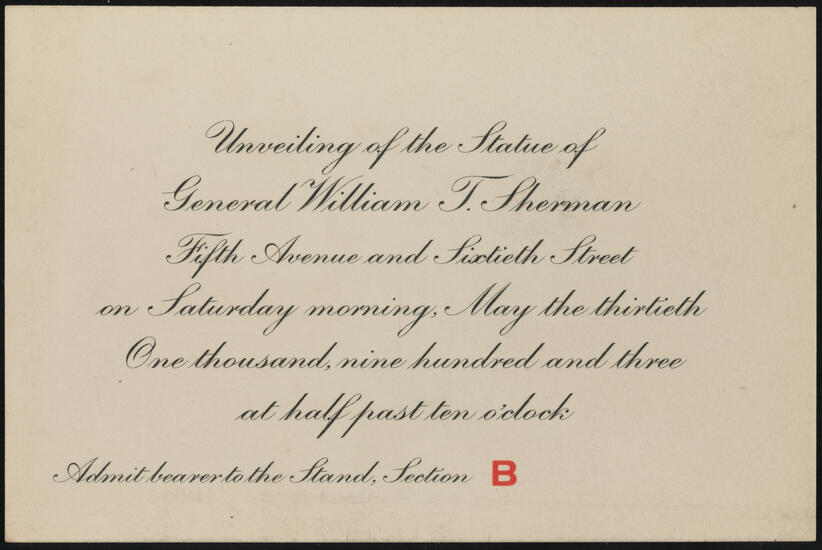 Unveiling of the Statue of
General William T. Sherman
Fifth Avenue and Sixtieth Street
on Saturday morning, May the thirtieth
One thousand, nine hundred and three
at half past ten o'clock
Admit bearer to the Stand, Section B